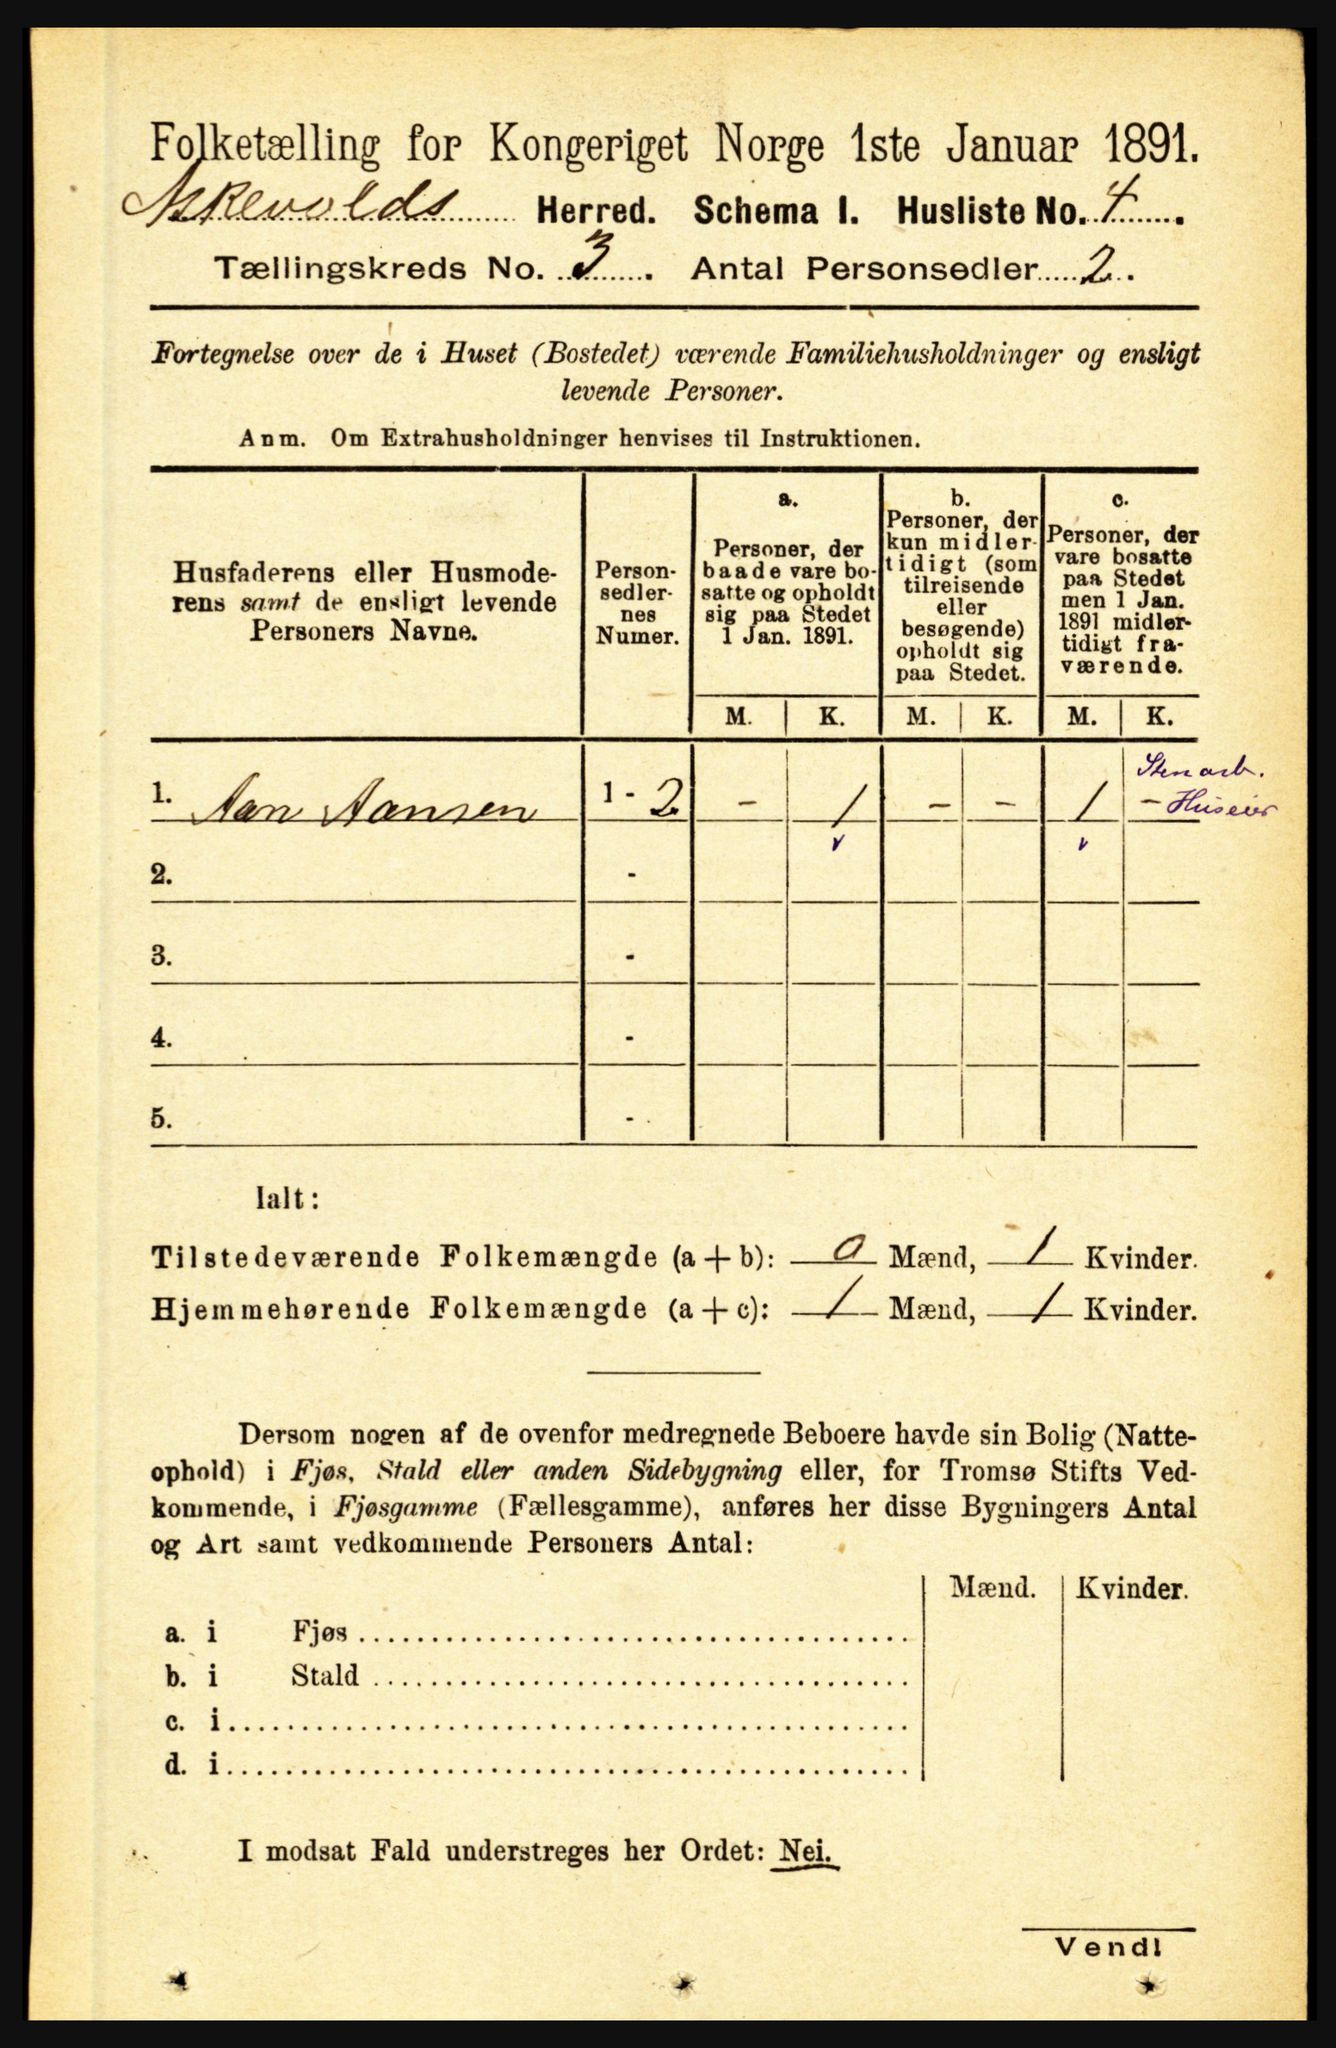 Folketælling for Kongeriget Norge 1ste Januar 1891.
Askevolds Herred. Schema I. Husliste No. 4.
Tællingskreds No. 3. Antal Personsedler 2.
Fortegnelse over de i Huset (Bostedet) værende Familiehusholdninger og ensligt
levende Personer.
Anm. Om Extrahusholdninger henvises til Instruktionen.
Husfaderens eller Husmode-
rens samt de ensligt levende
Personers Navne.
Person-
sedler-
nes
Numer.
a.
Personer, der
baade vare bo-
satte og opholdt
sig paa Stedet
1 Jan. 1891.
b.
Personer, der
kun midler-
tidigt (som
tilreisende
eller
besøgende)
opholdt sig
paa Stedet.
c.
Personer, der
vare bosatte
paa Stedet
men 1 Jan.
1891 midler-
tidigt fra-
værende.
M. K. M. K. M. K.
Stenarb.
1. Aan Aansen 1 - 2 - 1 - - 1 - Huseier
2. -
3. -
4. -
5. -
Ialt:
Tilstedeværende Folkemængde (a + b): 0 Mænd, 1 Kvinder.
Hjemmehørende Folkemængde (a + c): 1 Mænd, 1 Kvinder.
Dersom nogen af de ovenfor medregnede Beboere havde sin Bolig (Natte-
ophold) i Fjøs, Stald eller anden Sidebygning eller, for Tromsø Stifts Ved-
kommende, i Fjøsgamme (Fællesgamme), anføres her disse Bygningers Antal
og Art samt vedkommende Personers Antal:
Mænd. Kvinder.
a. i Fjøs
b. i Stald
c. i
d. i
I modsat Fald understreges her Ordet: Nei.
Vend!